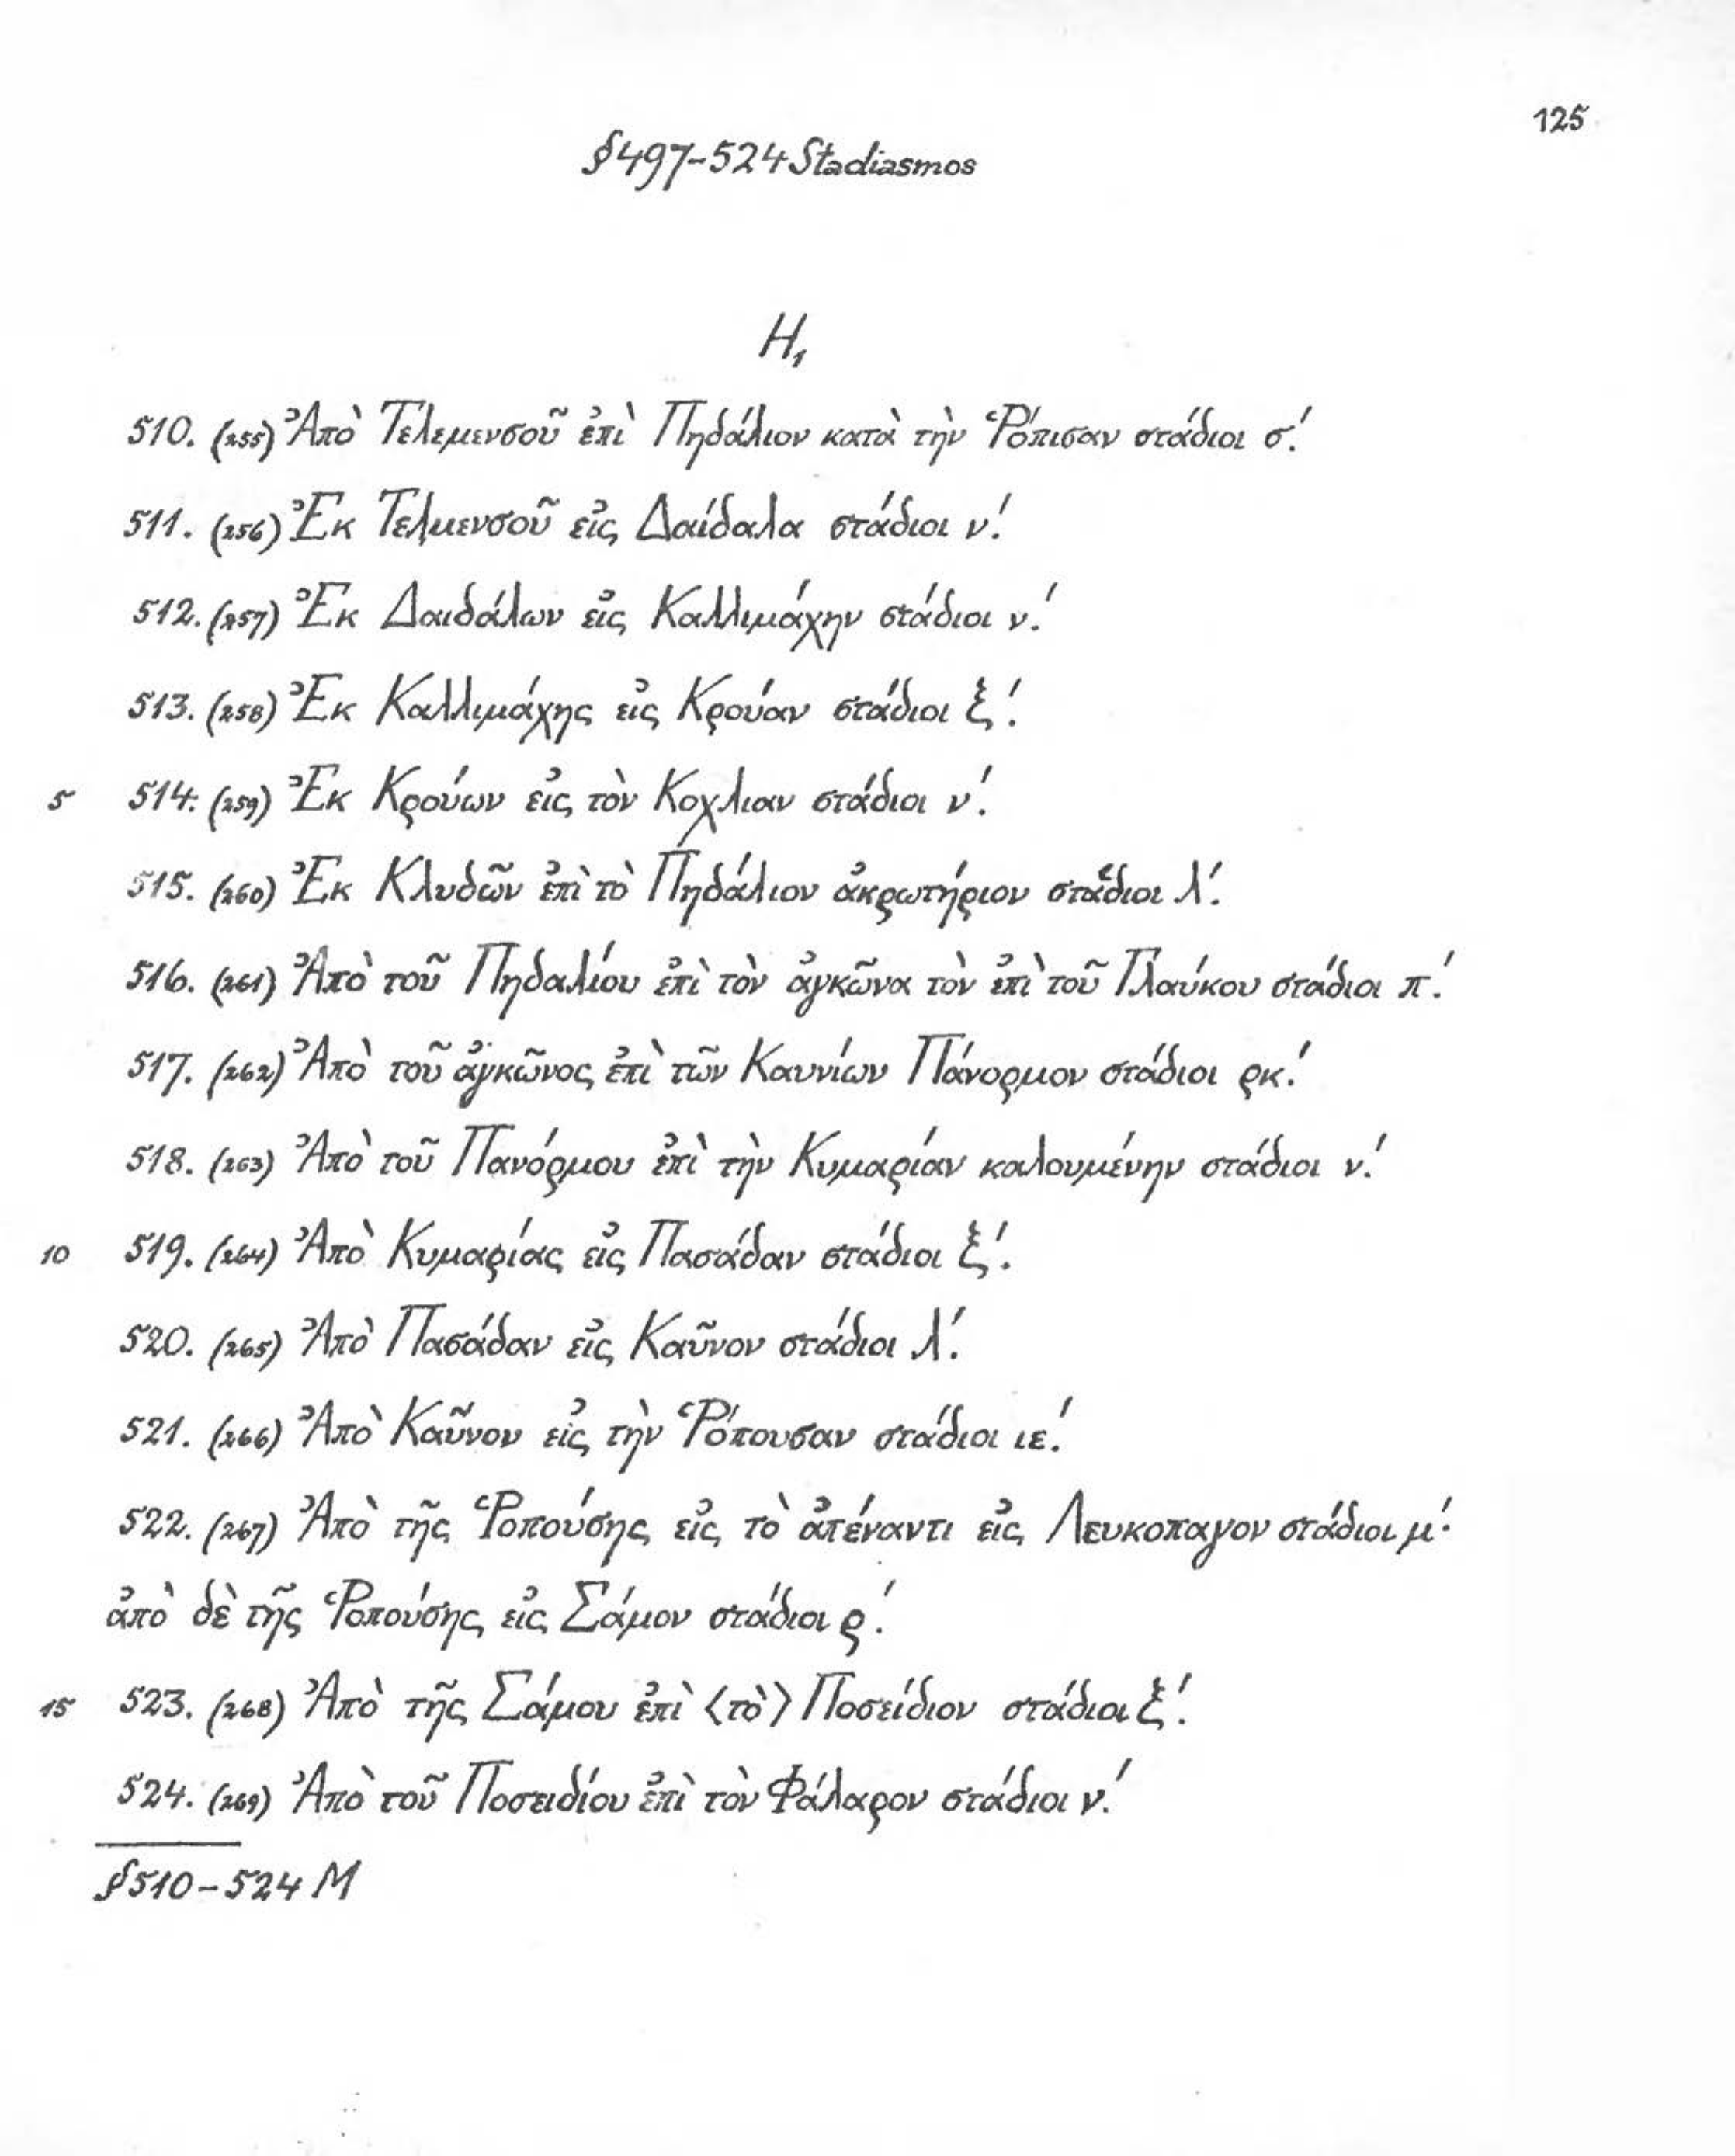 125
§497-524 Stadiasmos
H₁
510. (255) Ἀπὸ Τελεμενσοῦ ἐπὶ Πηδάλιον κατὰ τὴν Ῥόπισαν στάδιοι σ΄.
511. (256) Ἐκ Τελμενσοῦ εἰς Δαίδαλα στάδιοι ν΄.
512. (257) Ἐκ Δαιδάλων εἰς Καλλιμάχην στάδιοι ν΄.
513. (258) Ἐκ Καλλιμάχης εἰς Κρούαν στάδιοι ξ΄.
5 514. (259) Ἐκ Κρούων εἰς τὸν Κοχλιαν στάδιοι ν΄.
515. (260) Ἐκ Κλυδῶν ἐπὶ τὸ Πηδάλιον ἀκρωτήριον στάδιοι λ΄.
516. (261) Ἀπὸ τοῦ Πηδαλίου ἐπὶ τὸν ἀγκῶνα τὸν ἐπὶ τοῦ Γλαύκου στάδιοι π΄.
517. (262) Ἀπὸ τοῦ ἀγκῶνος ἐπὶ τῶν Καυνίων Πάνορμον στάδιοι ρκ΄.
518. (263) Ἀπὸ τοῦ Πανόρμου ἐπὶ τὴν Κυμαρίαν καλουμένην στάδιοι ν΄.
10 519. (264) Ἀπὸ Κυμαρίας εἰς Πασάδαν στάδιοι ξ΄.
520. (265) Ἀπὸ Πασάδαν εἰς Καῦνον στάδιοι λ΄.
521. (266) Ἀπὸ Καῦνον εἰς τὴν Ῥόπουσαν στάδιοι ιε΄.
522. (267) Ἀπὸ τῆς Ῥοπούσης εἰς τὸ ἀπέναντι εἰς Λευκοπαγον στάδιοι μ΄·
ἀπὸ δὲ τῆς Ῥοπούσης εἰς Σάμον στάδιοι ρ΄.
15 523. (268) Ἀπὸ τῆς Σάμου ἐπὶ ⟨τὸ⟩ Ποσείδιον στάδιοι ξ΄.
524. (269) Ἀπὸ τοῦ Ποσειδίου ἐπὶ τὸν Φάλαρον στάδιοι ν΄.
§510-524 M